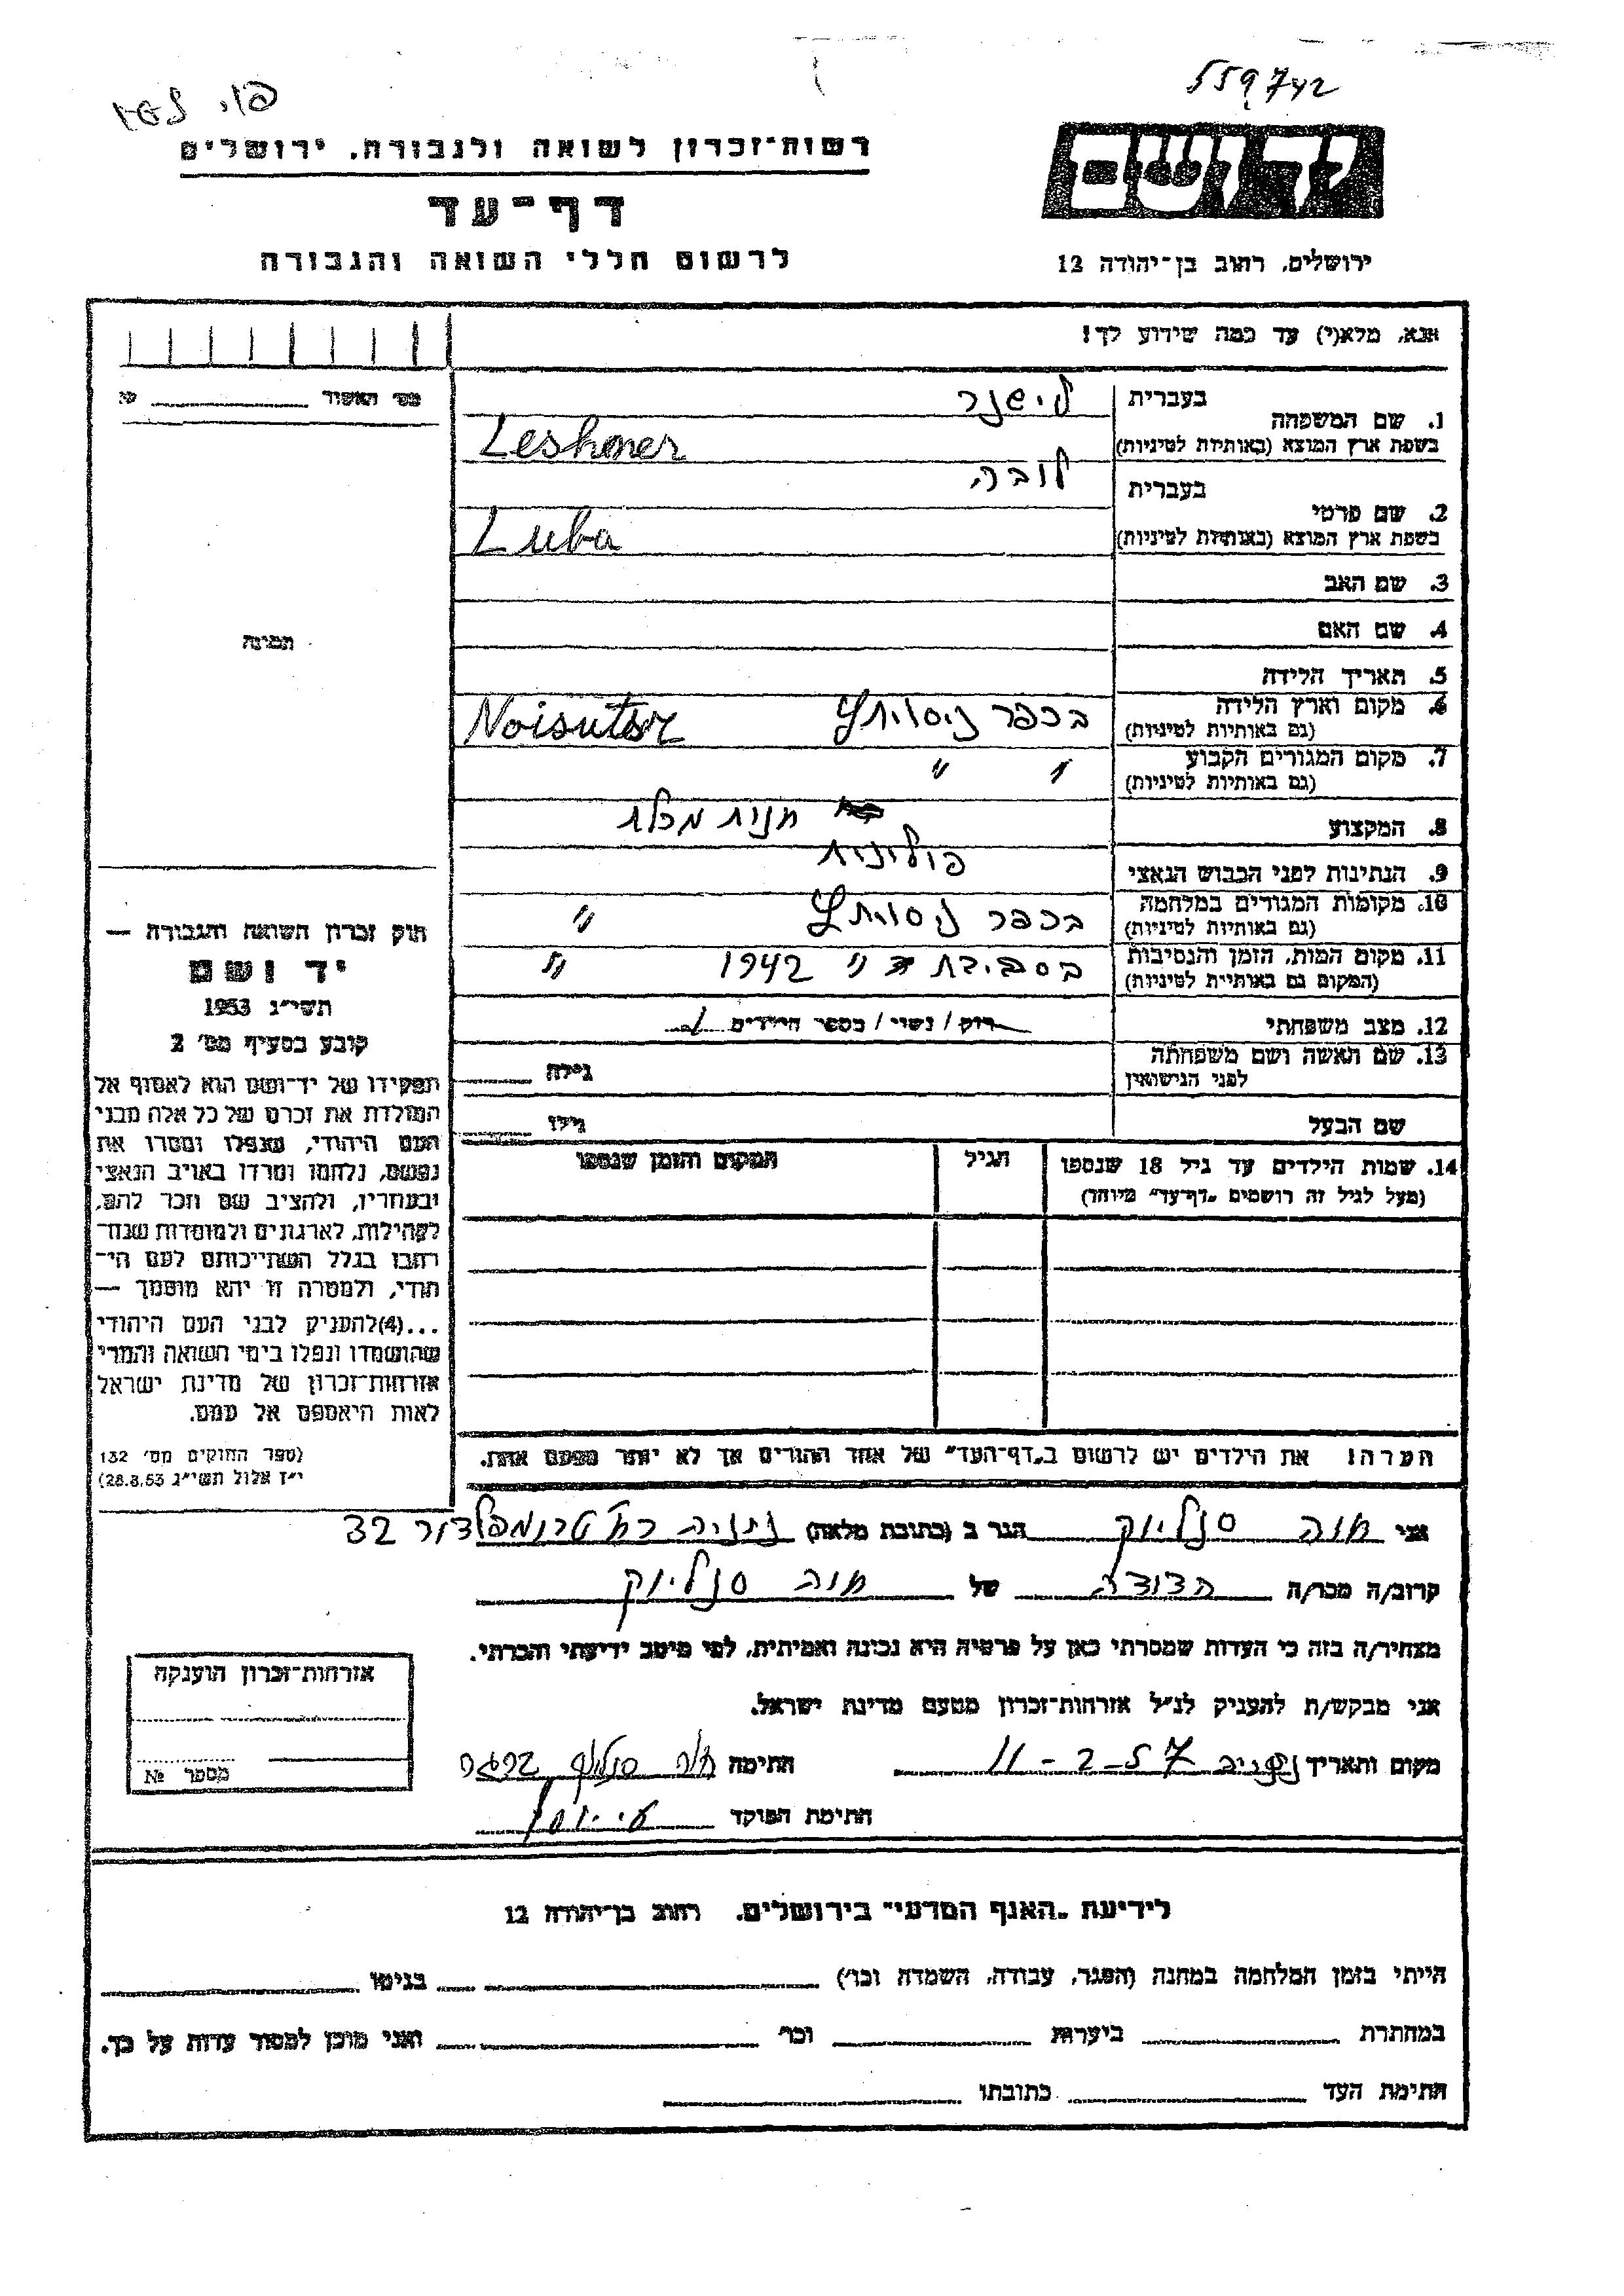 559742
רשות־זכרון לשואה ולגבורה. ירושלים
דף־עד
לרשום חללי השואה והגבורה
ידושם
ירושלים. רחוב בן־יהודה 12
אנא, מלא(י) עד כמה שידוע לך!
מס׳ האשור
1. שם המשפחה
בעברית לישנר
בשפת ארץ המוצא (באותיות לטיניות) Leshner
2. שם פרטי
בעברית לובה
בשפת ארץ המוצא (באותיות לטיניות) Luba
3. שם האב
4. שם האם
5. תאריך הלידה
6. מקום וארץ הלידה (גם באותיות לטיניות) בכפר Noisutser
7. מקום המגורים הקבוע (גם באותיות לטיניות) " "
8. המקצוע חנות מכלת
9. הנתינות לפני הכבוש הנאצי פולינית
10. מקומות המגורים במלחמה (גם באותיות לטיניות) בכפר "
11. מקום המות. הזמן והנסיבות (המקום גם באותיות לטיניות) בסביבת 1942 "
12. מצב משפחתי רווק / נשוי / מספר הילדים
13. שם האשה ושם משפחתה לפני הנישואין גילה
שם הבעל גילו
14. שמות הילדים עד גיל 18 שנספו
(מעל לגיל זה רושמים „דף־עד״ מיוחד)
הגיל
המקום והזמן שנספו
הערה! את הילדים יש לרשום ב„דף־העד״ של אחד ההורים אך לא יותר מפעם אחת.
תמונה
חוק זכרון השואה והגבורה —
יד ושם
תשי״ג 1953
קובע בסעיף מס׳ 2
תפקידו של יד־ושם הוא לאסוף אל
המולדת את זכרם של כל אלה מבני
העם היהודי, שנפלו ומסרו את
נפשם, נלחמו ומרדו באויב הנאצי
ובעוזריו, ולהציב שם וזכר להם,
לקהילות, לארגונים ולמוסדות שנח־
רבו בגלל השתייכותם לעם הי־
הודי, ולמטרה זו יהא מוסמך —
...(4)להעניק לבני העם היהודי
שהושמדו ונפלו בימי השואה והמרי
אזרחות־זכרון של מדינת ישראל
לאות היאספם אל עמם.
(ספר החוקים מס׳ 132
י״ז אלול תשי״ג 28.8.53)
אני חוה סנליוק הגר ב (כתובת מלאה) נתניה רח׳ טרומפלדור 32
קרוב/ה מכר/ה הדודה של חוה סנליוק
מצהיר/ה בזה כי העדות שמסרתי כאן על פרטיה היא נכונה ואמיתית, לפי מיטב ידיעתי והכרתי.
אני מבקש/ת להעניק לנ״ל אזרחות־זכרון מטעם מדינת ישראל.
מקום ותאריך נתניה 11-2-57 חתימה חוה
חתימת הפוקד
אזרחות־זכרון הוענקה
מספר №
לידיעת „האגף המדעי״ בירושלים. רחוב בן־יהודה 12
הייתי בזמן המלחמה במחנה (הסגר, עבודה, השמדה וכו׳) בגיטו
במחתרת ביערות וכו׳ ואני מוכן למסור עדות על כך.
חתימת העד כתובתו